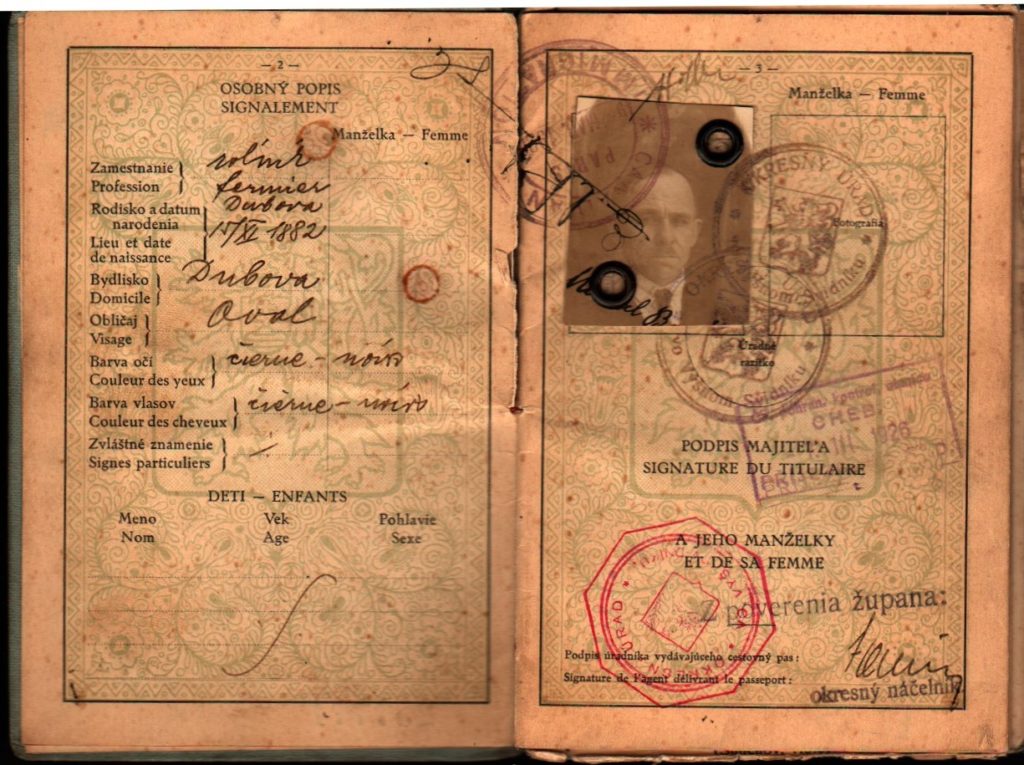 — 2 —
OSOBNÝ POPIS
SIGNALEMENT
Manželka — Femme
Zamestnanie
Profession
rolník
fermier
Rodisko a datum
narodenia
Lieu et date
de naissance
Dubova
15/XI 1882
Bydlisko
Domicile
Dubova
Obličaj
Visage
Oval
Barva očí
Couleur des yeux
čierne - noirs
Barva vlasov
Couleur des cheveux
čierne - noirs
Zvláštné znamenie
Signes particuliers
DETI — ENFANTS
Meno Vek Pohlavie
Nom Age Sexe
— 3 —
Manželka — Femme
OKRESNÝ ÚRAD
Fotografia
Úradné
razítko
CHEB
1926
PODPIS MAJITEL'A
SIGNATURE DU TITULAIRE
A JEHO MANŽELKY
ET DE SA FEMME
Z poverenia župana:
Podpis úradníka vydávajúceho cestovný pas:
Signature de l'agent délivrant le passeport:
okresný náčelník